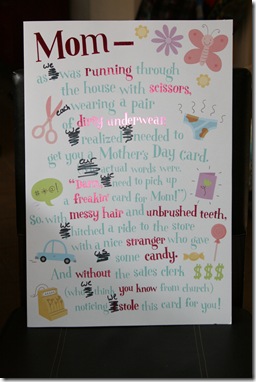 Mom—
as we was running through
the house with scissors,
each wearing a pair
of dirty underwear
we realized we needed to
get you a Mother's Day card.
our actual words were,
need to pick up
a freakin' card for Mom!")
So, with messy hair and unbrushed teeth,
we hitched a ride to the store
with a nice stranger who gave
us some candy.
And without the sales clerk
(who we think you know from church)
noticing, we stole this card for you!
@#•!
$$$